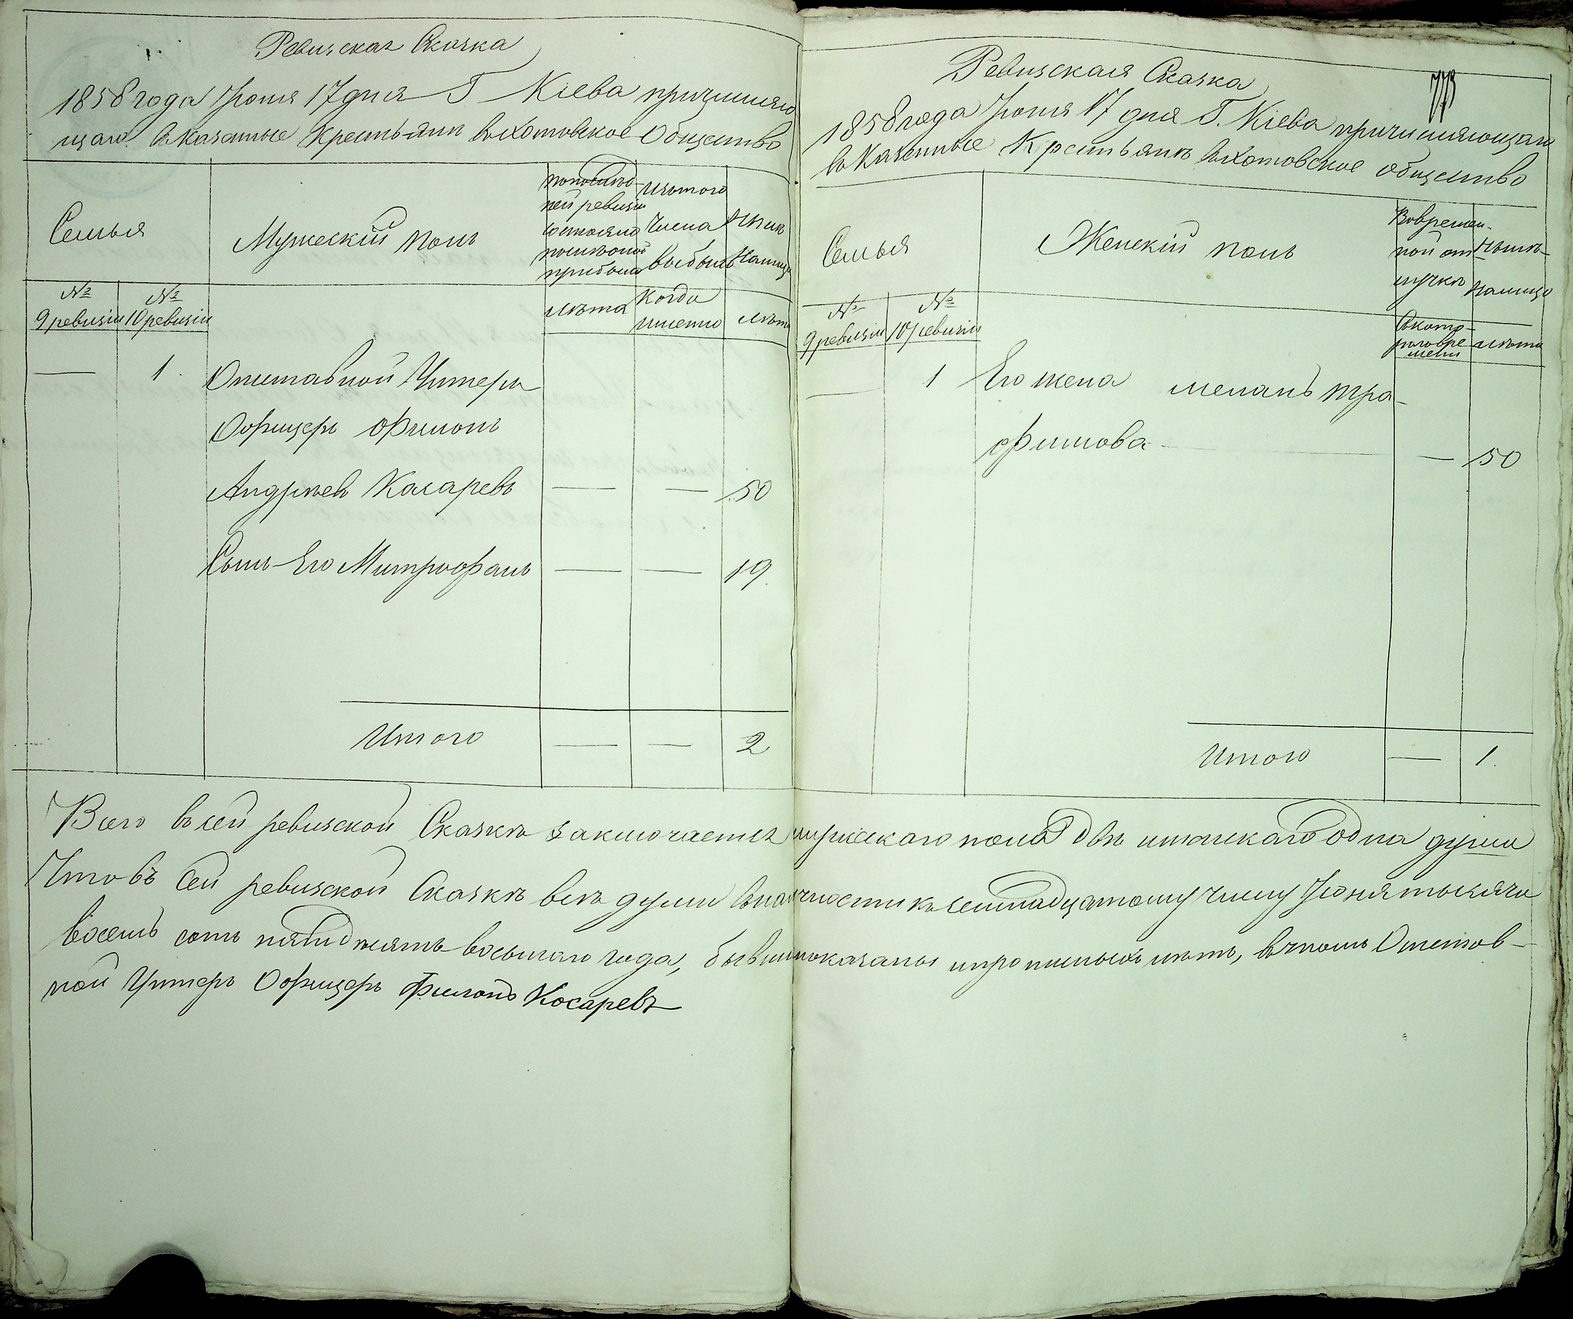 Ревизская Сказка
1858 года Іюня 17 дня Г. Кіева причисляю
щаго в казенные Крестьянъ в Хотовское Общество
Семья
Мужескій полъ
по послѣд-
ней ревизіи
состояло
и послѣ оной
прибыло
изъ того
числа
выбыло
Нынѣ
налицо
№
9 ревизіи
№
10 ревизіи
лѣта
когда
именно
лѣта
— 1 Отставной Унтеръ
Офицеръ Филонъ
Андреевъ Касаревъ — — 50
Сынъ Его Митрофанъ — — 19
Итого — — 2
Ревизская Сказка
1858 года Іюня 17 дня Г. Кіева причисляющаго
в Казенные Крестьянъ в Хотовское общество
Семья
Женскій полъ
Во времен-
ной от
лучкѣ
Нынѣ
налицо
№
9 ревизіи
№
10 ревизіи
С кото-
раго вре
мени
лѣта
— 1 Его жена мелань тро-
фимова — 50
Итого — 1
Всего в сей ревизской Сказкѣ заключается мужескаго пола двѣ и женскаго одна души
Что въ сей ревизской Сказкѣ всѣ души в наличности къ семнадцатому числу Іюня тысяча
восемь сотъ пятидесять восьмаго года, бывши показаны и прописныхъ нѣтъ, в чемъ Отстав-
ной Унтеръ Офицеръ Филонъ Косаревъ